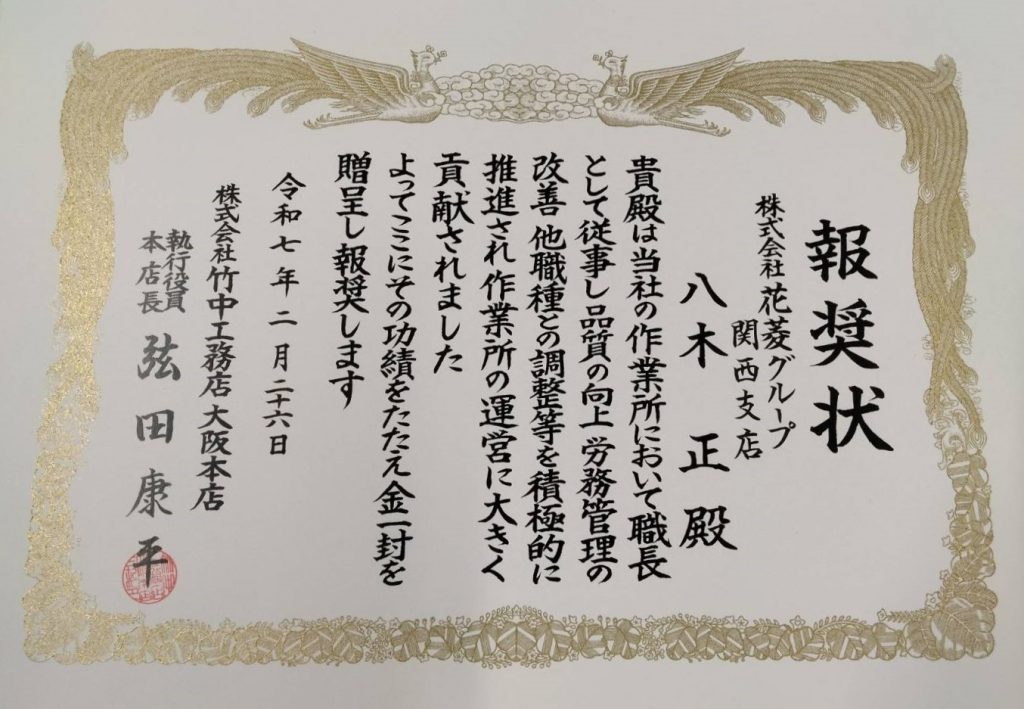 報奨状
株式会社花菱グループ
関西支店
八木正殿
貴殿は当社の作業所において職長
として従事し品質の向上労務管理の
改善他職種との調整等を積極的に
推進され作業所の運営に大きく
貢献されました
よってここにその功績をたたえ金一封を
贈呈し報奨します
令和七年二月二十六日
株式会社竹中工務店大阪本店
執行役員
本店長
弦田康平